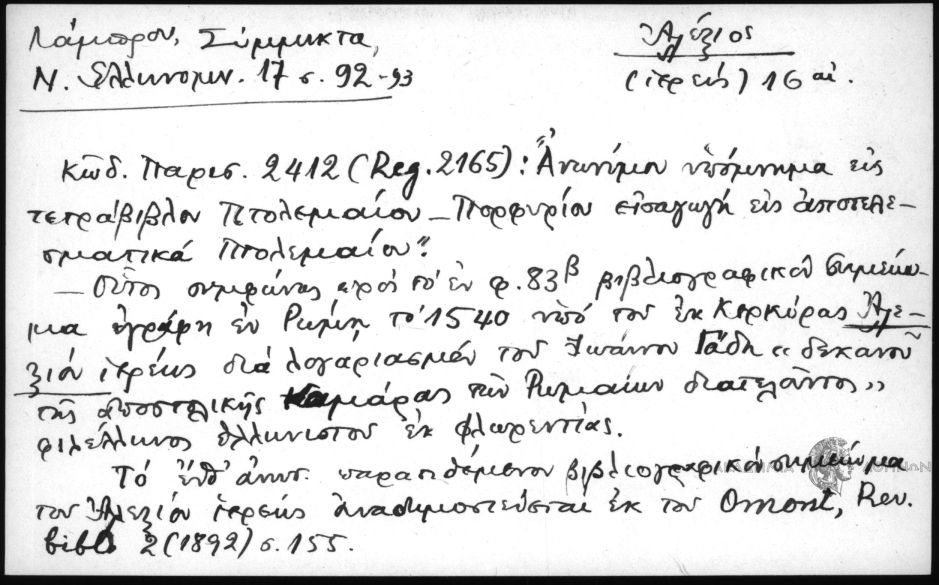 Λάμπρου, Σύμμικτα,
Ν. Ἑλληνομν. 17 σ. 92-93
Ἀλέξιος
(ἱερεύς) 16 αἰ.
Κῶδ. Παρισ. 2412 (Reg. 2165): "Ἀνωνύμου ὑπόμνημα εἰς
τετράβιβλον Πτολεμαίου – Πορφυρίου εἰσαγωγή εἰς ἀποτελε-
σματικά Πτολεμαίου".
– Οὗτος συμφώνως πρός τό ἐν φ. 83β βιβλιογραφικόν σημείω-
μα ἐγράφη ἐν Ρώμῃ τό 1540 ὑπό τοῦ ἐκ Κερκύρας Ἀλε-
ξίου ἱερέως διά λογαριασμόν τοῦ Ἰωάννου Γάδη «δεκανοῦ
τῆς ἀποστολικῆς Καμάρας τῶν Ρωμαίων διατελοῦντος»
φιλέλληνος ἑλληνιστοῦ ἐκ Φλωρεντίας.
Τό ἐνθ' ἀνωτ. παρατιθέμενον βιβλιογραφικόν σημείωμα
τοῦ Ἀλεξίου ἱερέως ἀναδημοσιεύεται ἐκ τοῦ Omont, Rev.
bibl 2 (1892) σ. 155.